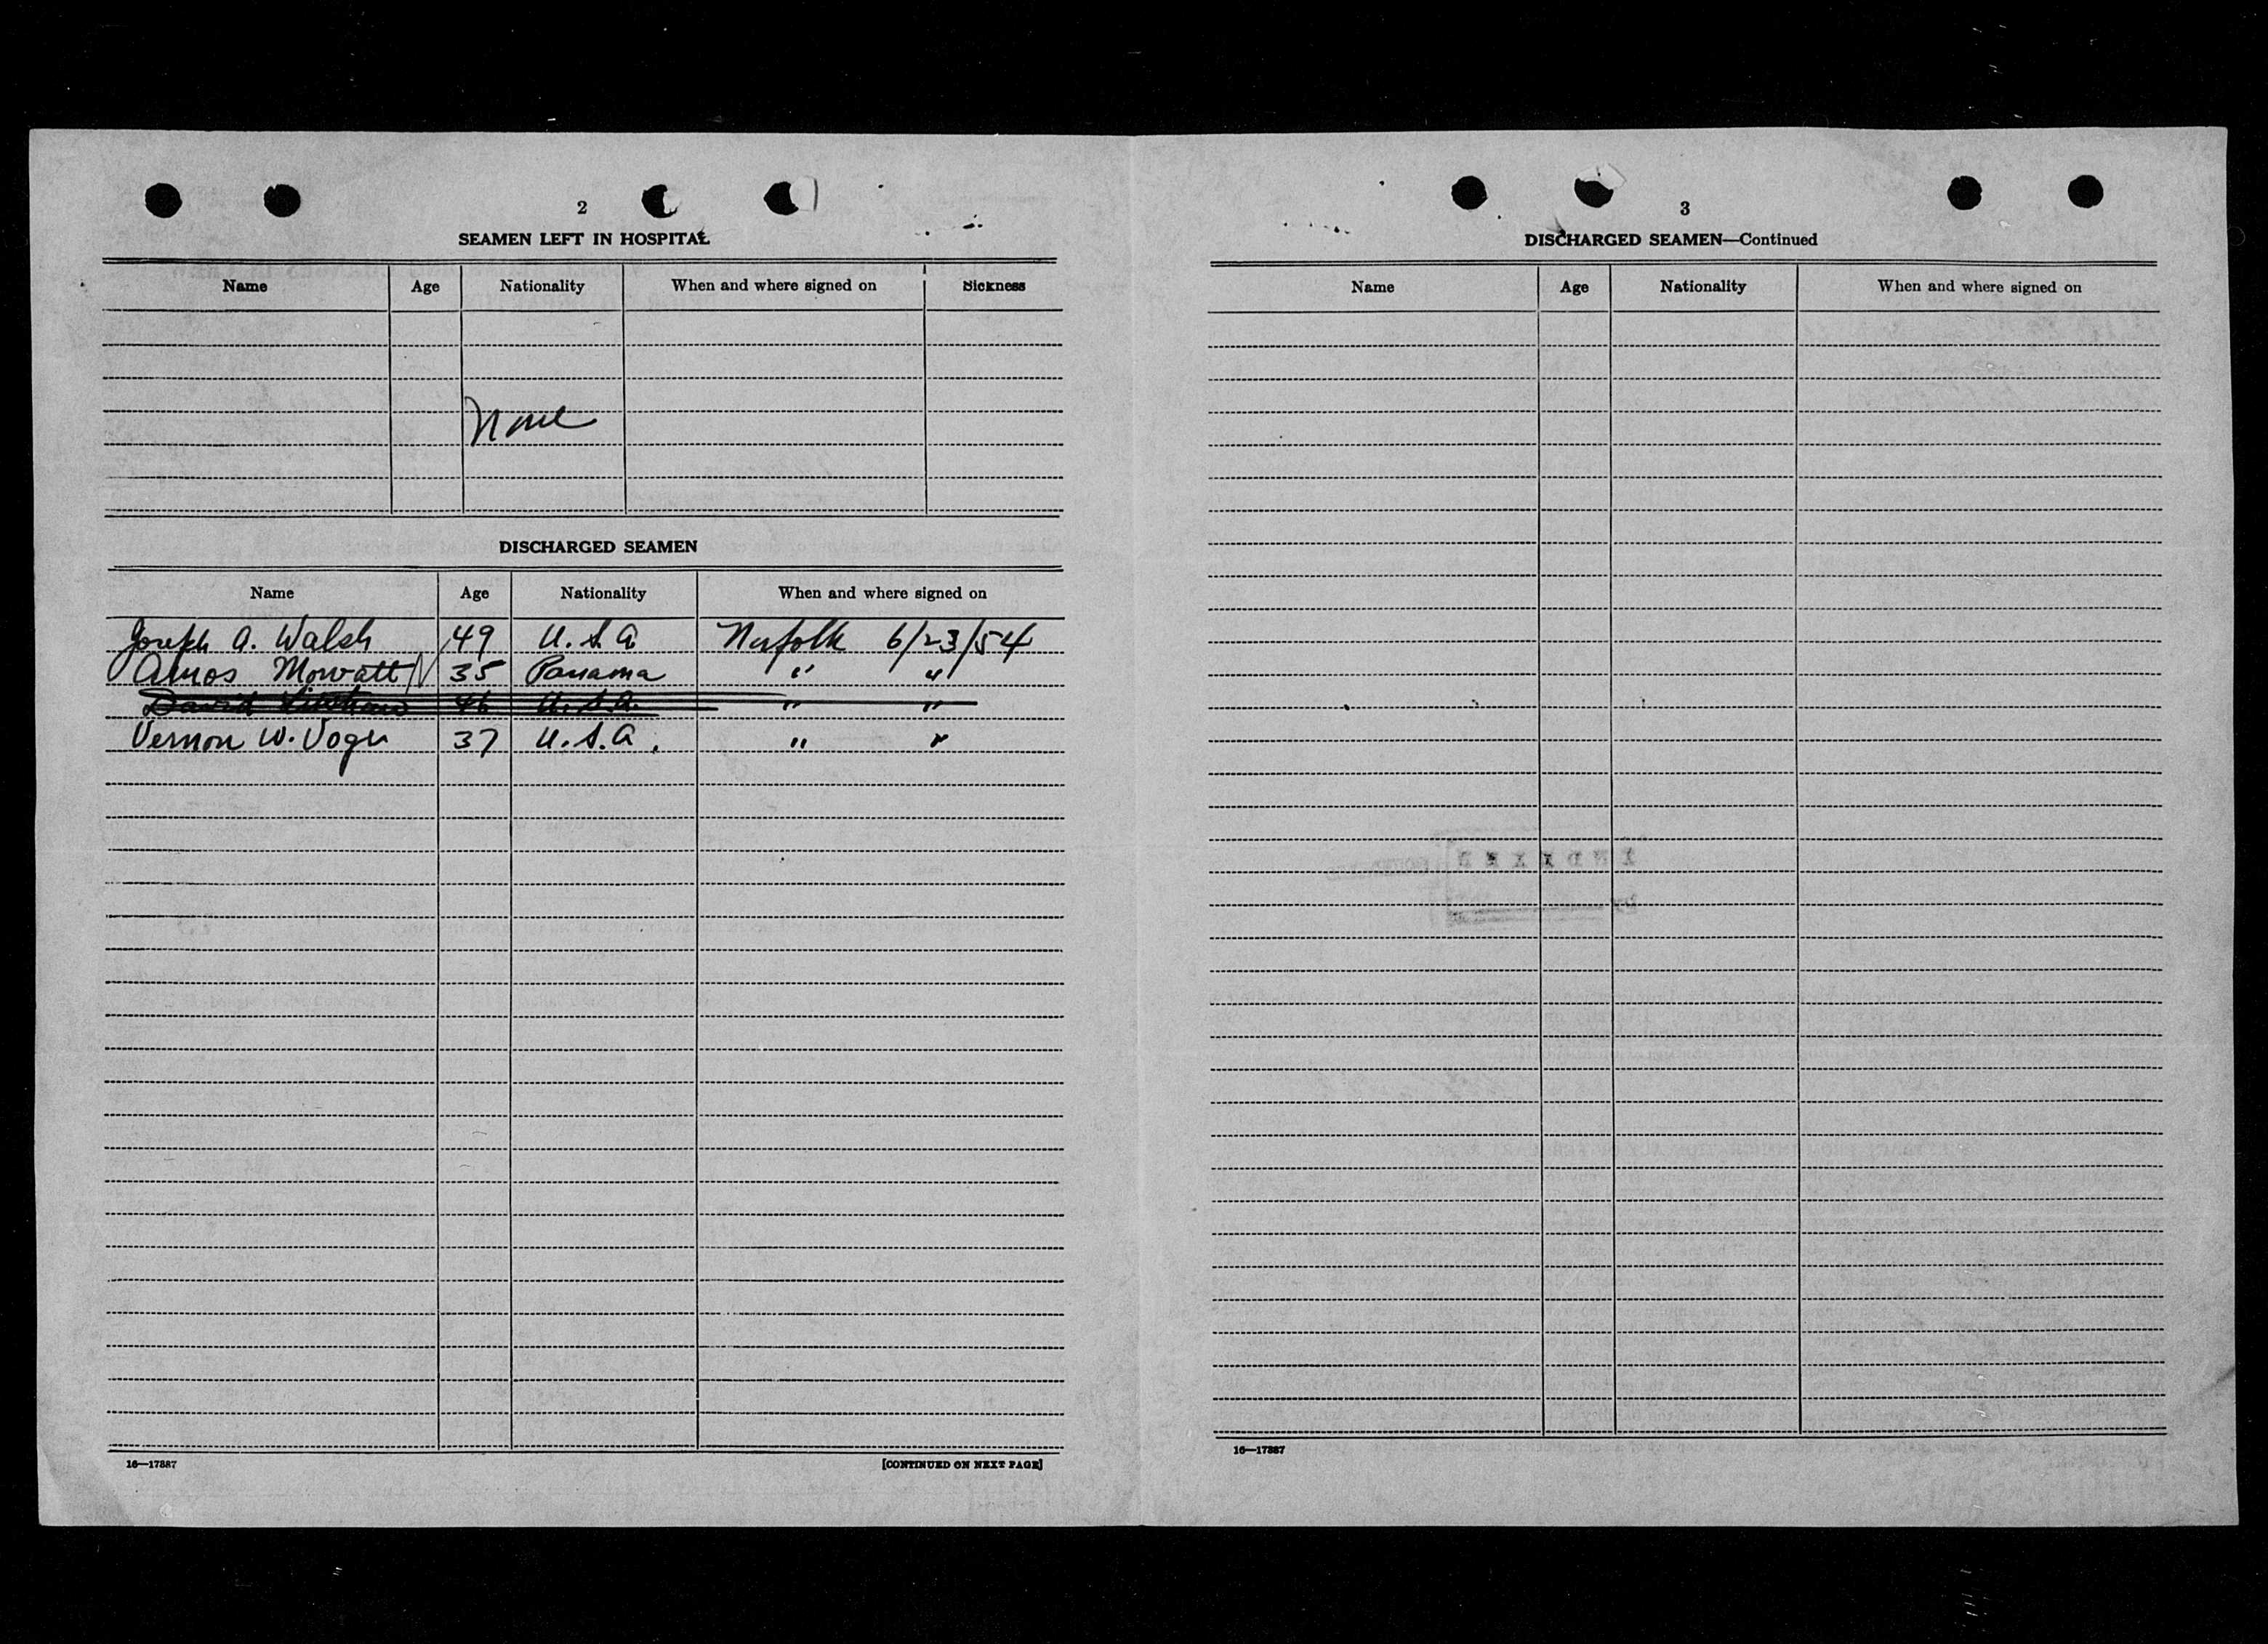 2
SEAMEN LEFT IN HOSPITAL
Name Age Nationality When and where signed on Sickness
None
DISCHARGED SEAMEN
Name Age Nationality When and where signed on
Joseph A. Walsh 49 U.S.A Norfolk 6/23/54
Amos Mowatt 35 Panama " "
David 46 U.S.A. " "
Vernon W. Vogu 37 U.S.A. " "
16—17887 [CONTINUED ON NEXT PAGE]
3
DISCHARGED SEAMEN—Continued
Name Age Nationality When and where signed on
INDEXED
16—17887